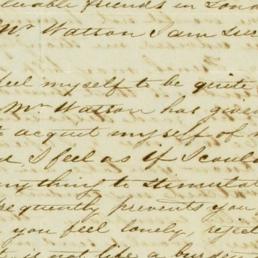 luable friends in Lond
Mr Watson I am
feel myself to be quite
Mr Watson has giv
acquit myself of
I feel as if I coul
anything to stimulat
frequently prevents you
you feel lonely, rejec
is not life a burden